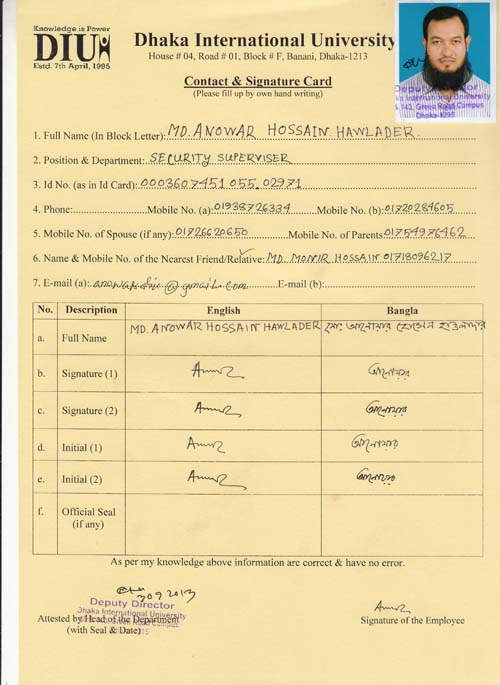 Knowledge is Power
DIU
Estd. 7th April, 1995
Dhaka International University
House # 04, Road # 01, Block # F, Banani, Dhaka-1213
Contact & Signature Card
(Please fill up by own hand writing)
Deputy Director
Dhaka International University
Green Road Campus
Dhaka-1205
1. Full Name (In Block Letter): MD. ANOWAR HOSSAIN HAWLADER.
2. Position & Department: SECURITY SUPERVISER
3. Id No. (as in Id Card): 0003607451 055.02971
4. Phone: Mobile No. (a): 01938726334 Mobile No. (b): 01720284605
5. Mobile No. of Spouse (if any): 01726620650 Mobile No. of Parents 01754976462
6. Name & Mobile No. of the Nearest Friend/Relative: MD. MONIR HOSSAIN 01718096217
7. E-mail (a): @gmail.com E-mail (b):
No. Description English Bangla
a. Full Name MD. ANOWAR HOSSAIN HAWLADER মোঃ আনোয়ার হোসেন হাওলাদার
b. Signature (1) আনোয়ার
c. Signature (2) আনোয়ার
d. Initial (1) আনোয়ার
e. Initial (2) আনোয়ার
f. Official Seal
(if any)
As per my knowledge above information are correct & have no error.
Deputy Director
Dhaka International University
Green Road Campus
Attested by Head of the Department
(with Seal & Date)
Signature of the Employee